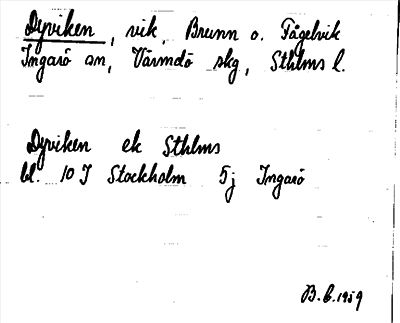 Dyviken, vik, Brunn o. Fågelvik
Ingarö sn, Värmdö skg, Sthlms l.
Dyviken ek Sthlms
bl. 10 I Stockholm 5j Ingarö
B.C. 1959